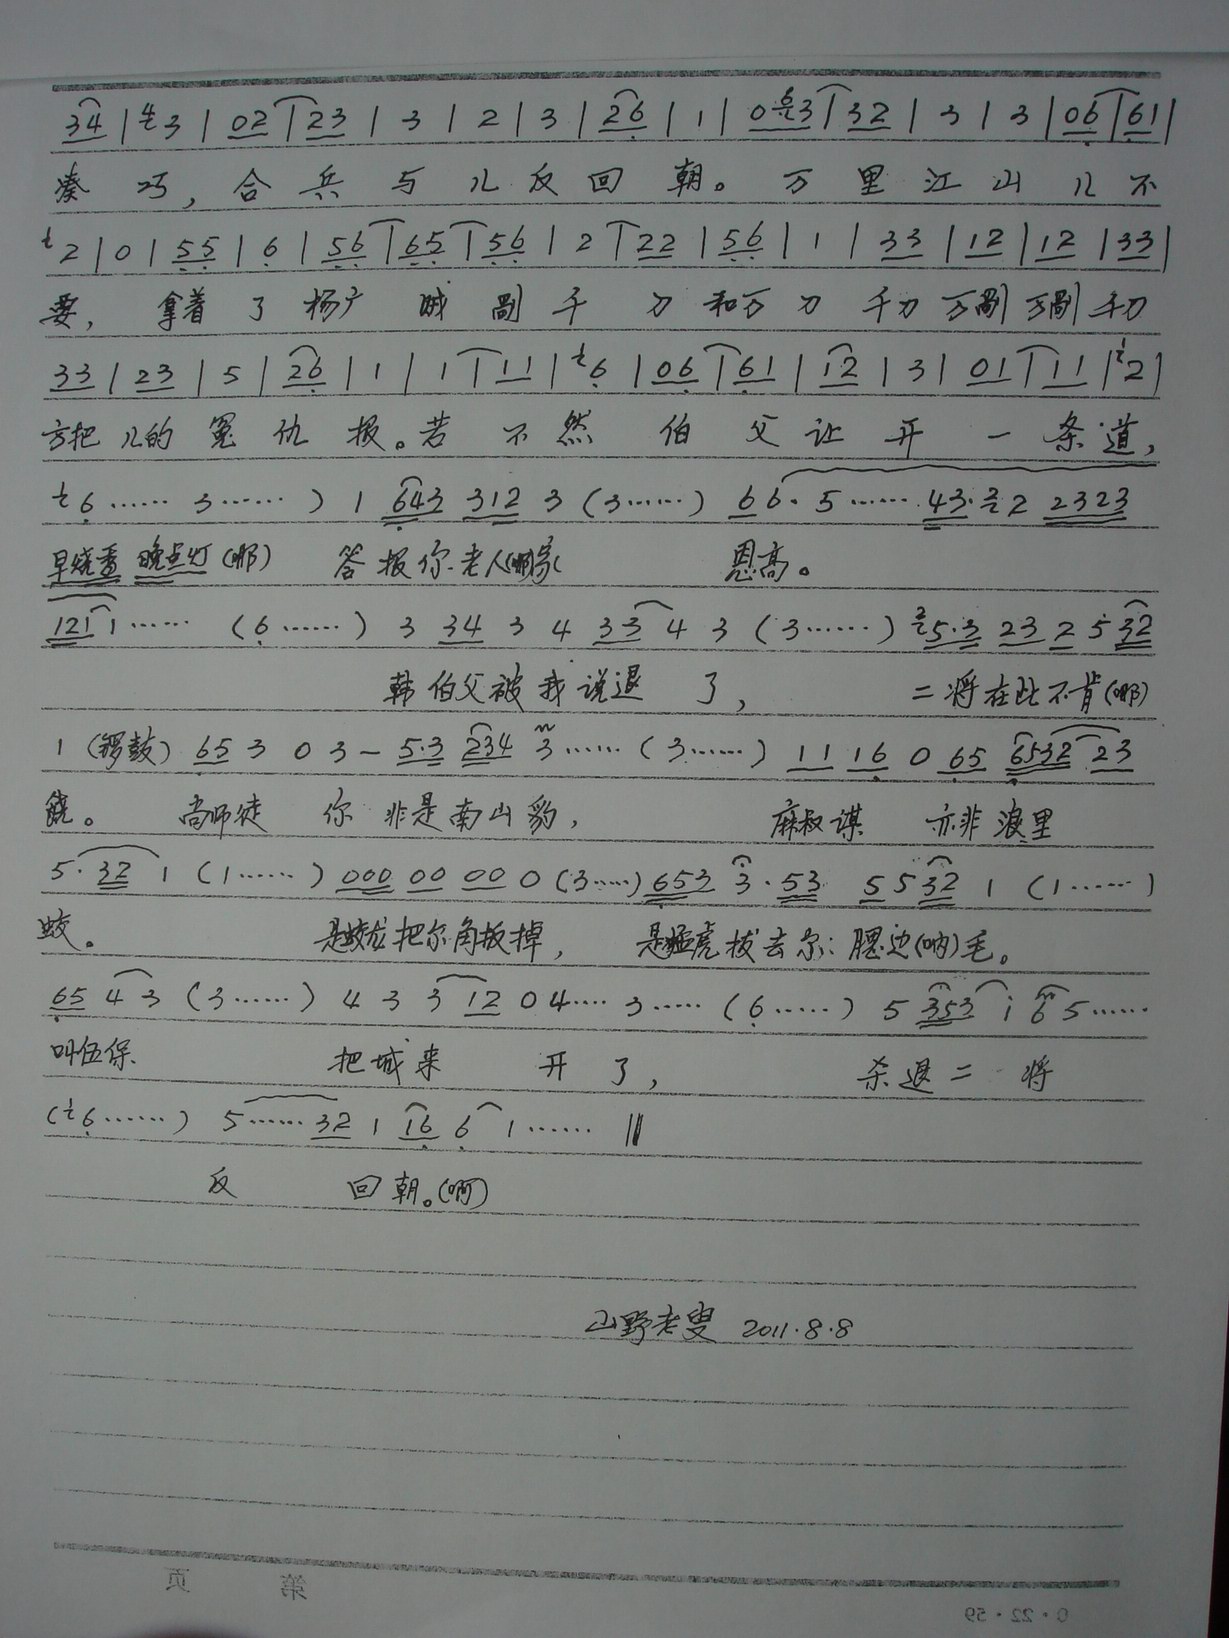 34 | 3 | 02 | 23 | 3 | 2 | 3 | 26 | 1 | 0 3 | 32 | 3 | 3 | 06 | 61 |
凑巧，合兵与儿反回朝。万里江山儿不
2 | 0 | 55 | 6 | 56 | 65 | 56 | 2 | 22 | 56 | 1 | 33 | 12 | 12 | 33 |
要，拿着了杨广贼剐千刀和万刀千刀万剐万剐千刀
33 | 23 | 5 | 26 | 1 | 1 | 11 | 6 | 06 | 61 | 12 | 3 | 01 | 11 | 2 |
方把儿的冤仇报。若不然伯父让开一条道，
6 …… 3 …… ) 1 643 312 3 (3……) 66· 5 …… 43· 2 2323
早烧香晚点灯(哪) 答报你老人(啊)家 恩高。
121 1 …… (6……) 3 34 3 4 33 4 3 (3……) 5·3 23 2 5 32
韩伯父被我说退了， 二将在此不肯(哪)
1 (锣鼓) 65 3 0 3 — 5·3 234 3 …… (3……) 11 16 0 65 6532 23
饶。 尚师徒你非是南山豹， 麻叔谋亦非浪里
5·32 1 (1……) 000 00 00 0 (3……) 653 3·53 5 5 32 1 (1……)
蛟。 是蛟龙把尔角扳掉， 是猛虎拔去尔:腮边(呐)毛。
65 4 3 (3……) 4 3 3 12 0 4…… 3 …… (6……) 5 353 i 6 5 ……
叫伍保 把城来开了， 杀退二将
(6……) 5 …… 32 1 16 6 1 ……
反 回朝。(啊)
山野老叟 2011·8·8
第 页
0·22·59